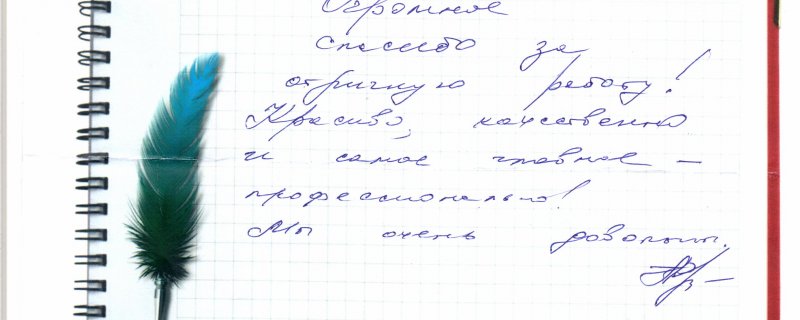 Огромное
спасибо за
отличную работу!
Красиво, качественно
и самое главное –
профессионально!
Мы очень довольны.